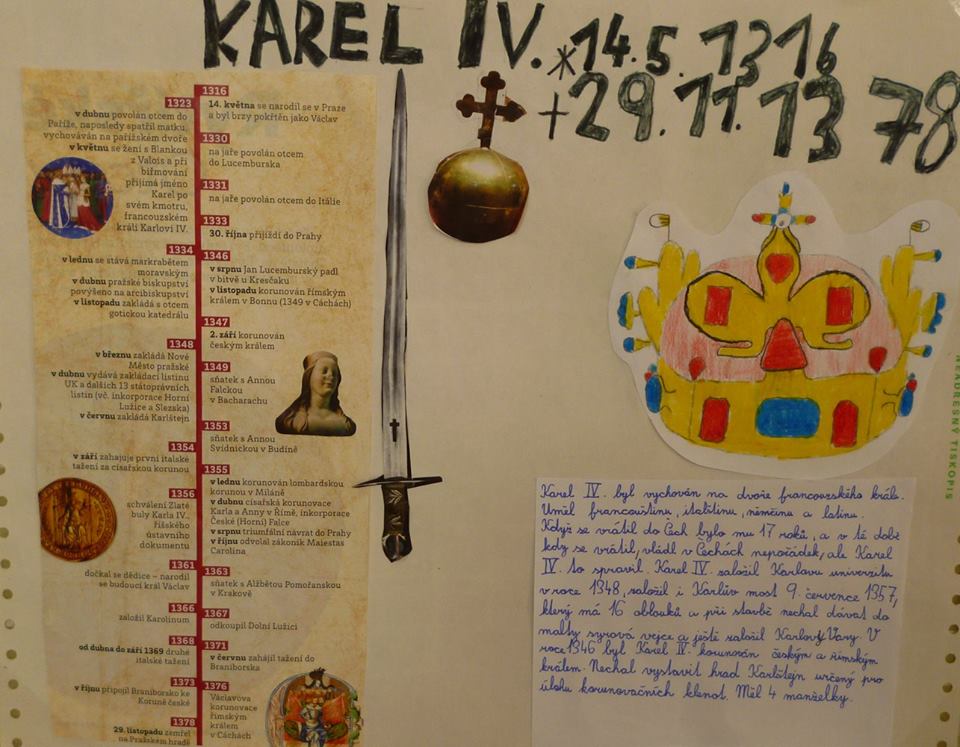 KAREL IV. *14.5. 1316
+29.11.1378
1316
14. května se narodil se v Praze
a byl brzy pokřtěn jako Václav
1323
v dubnu povolán otcem do
Paříže, naposledy spatřil matku,
vychováván na pařížském dvoře
v květnu se žení s Blankou
z Valois a při
biřmování
přijímá jméno
Karel po
svém kmotru,
francouzském
králi Karlovi IV.
1330
na jaře povolán otcem
do Lucemburska
1331
na jaře povolán otcem do Itálie
1333
30. října přijíždí do Prahy
1334
v lednu se stává markrabětem
moravským
v dubnu pražské biskupství
povýšeno na arcibiskupství
v listopadu zakládá s otcem
gotickou katedrálu
1346
v srpnu Jan Lucemburský padl
v bitvě u Kresčaku
v listopadu korunován římským
králem v Bonnu (1349 v Cáchách)
1347
2. září korunován
českým králem
1348
v březnu zakládá Nové
Město pražské
v dubnu vydává zakládací listinu
UK a dalších 13 státoprávních
listin (vč. inkorporace Horní
Lužice a Slezska)
v červnu zakládá Karlštejn
1349
sňatek s Annou
Falckou
v Bacharachu
1353
sňatek s Annou
Svídnickou v Budíně
1354
v září zahajuje první italské
tažení za císařskou korunou
1355
v lednu korunován lombardskou
korunou v Miláně
v dubnu císařská korunovace
Karla a Anny v Římě, inkorporace
České (Horní) Falce
v srpnu triumfální návrat do Prahy
v říjnu odvolal zákoník Maiestas
Carolina
1356
schválení Zlaté
buly Karla IV.,
říšského
ústavního
dokumentu
1361
dočkal se dědice – narodil
se budoucí král Václav
1363
sňatek s Alžbětou Pomořanskou
v Krakově
1366
založil Karolinum
1367
odkoupil Dolní Lužici
1368
od dubna do září 1369 druhé
italské tažení
1371
v červnu zahájil tažení do
Braniborska
1373
v říjnu připojil Braniborsko ke
Koruně české
1376
Václavova
korunovace
římským
králem
v Cáchách
1378
29. listopadu zemřel
na Pražském hradě
NEADRESNÝ TISKOPIS
Karel IV. byl vychován na dvoře francouzského krále.
Uměl francouštinu, italštinu, němčinu a latinu.
Když se vrátil do Čech bylo mu 17 roků, a v té době
kdy se vrátil, vládl v Čechách nepořádek, ale Karel
IV. to spravil. Karel IV. založil Karlovu univerzitu
v roce 1348, založil i Karlův most 9. července 1357,
který má 16 oblouků a při stavbě nechal dávat do
malty syrová vejce a ještě založil Karlovy Vary. V
roce 1346 byl Karel IV. korunován českým a římským
králem. Nechal vystavit hrad Karlštejn určený pro
úlohu korunovačních klenot. Měl 4 manželky.